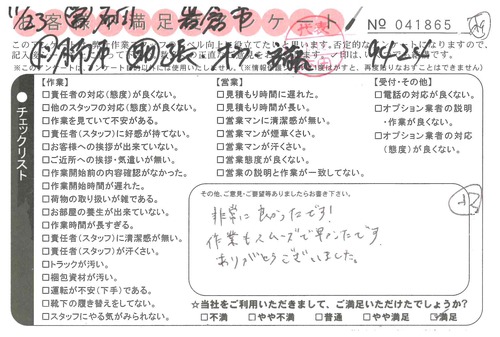 お客様不満足アンケート
No 041865
このアンケートは弊社作業
否定的な
※このアンケートは
(※情報
■チェックリスト
【作業】
□責任者(態度)が良くない。
□他のスタッフの対応(態度)が良くない。
□作業を見ていて不安がある。
□責任者(スタッフ)に好感が持てない。
□お客様への挨拶が出来ていない。
□ご近所への挨拶・気遣いが無い。
□作業開始前の内容確認がなかった。
□作業開始時間が遅れた。
□荷物の取り扱いが雑である。
□お部屋の養生が出来ていない。
□作業時間が長すぎる。
□責任者(スタッフ)に清潔感が無い。
□責任者(スタッフ)が汗くさい。
□トラックが汚い。
□梱包資材が汚い。
□運転が不安(下手)である。
□靴下の履き替えをしてない。
□スタッフにやる気がみられない。
【営業】
□見積もり時間に遅れた。
□見積もり時間が長い。
□営業マンに清潔感が無い。
□営業マンが煙草くさい。
□営業マンが汗くさい。
□営業態度が良くない。
□営業の説明と作業が一致してない。
【受付・その他】
□電話の対応が良くない。
□オプション業者の説明
・作業が良くない。
□オプション業者の対応
(態度)が良くない。
その他、ご意見・ご要望等ありましたらお書き下さい。
非常に良かったです!
作業もスムーズで早かったです
ありがとうございました。
☆当社をご利用いただきまして、ご満足いただけたでしょうか?
□不満 □やや不満 □普通 □やや満足 ☑満足